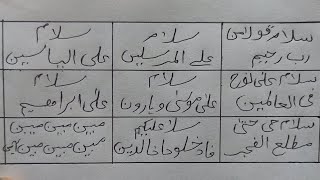 سلام قولا من
رب رحیم
سلام
علے المرسلین
سلام
علی الیاسین
سلام علی نوح
فی العالمین
سلام
علی موسیٰ و ہارون
سلام
علی ابراھیم
سلام ھی حتیٰ
مطلع الفجر
سلام علیکم
فادخلوھا خالدین
مبین مبین مبین
مبین مبین مبین